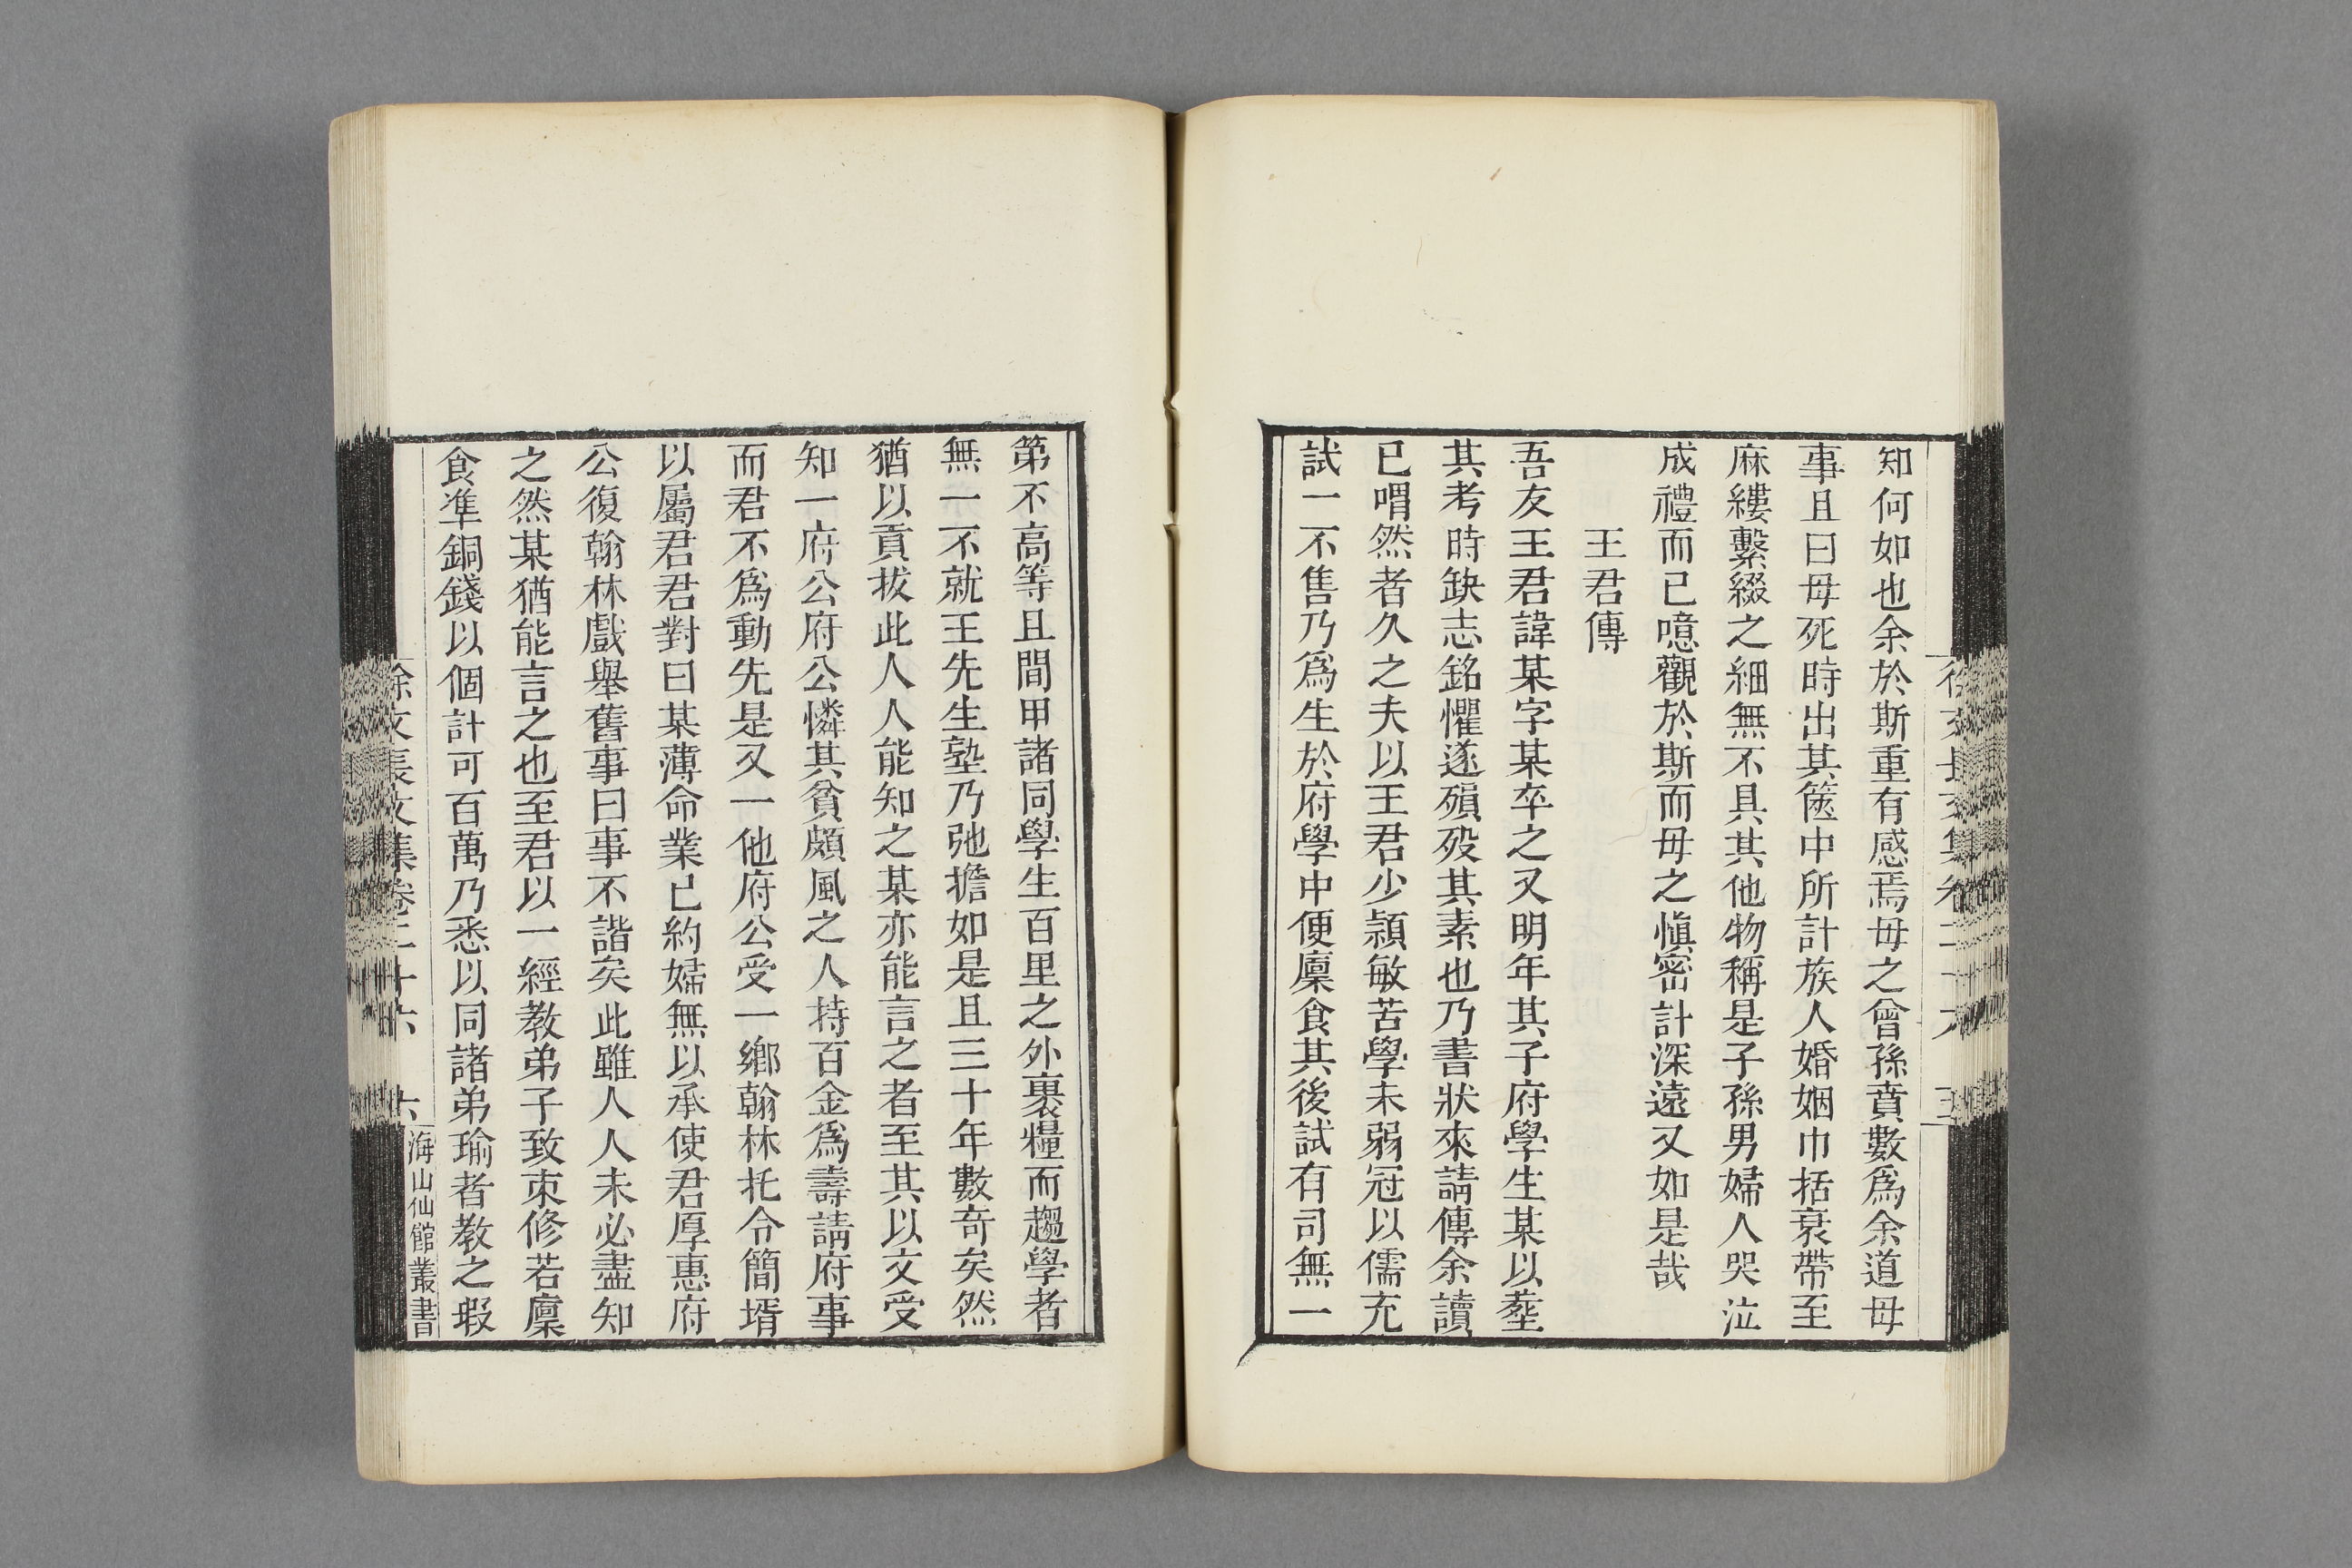 知何如也余於斯重有感焉毋之曾孫賁數爲余道毋
事且曰毋死時出其篋中所計族人婚姻巾括衰帶至
麻縷繫綴之細無不具其他物稱是子孫男婦人哭泣
成禮而已噫觀於斯而毋之愼密計深遠又如是哉
王君傳
吾友王君諱某字某卒之又明年其子府學生某以塟
其考時缺志銘懼遂殞歿其素也乃書狀來請傳余讀
已喟然者久之夫以王君少頴敏苦學未弱冠以儒充
試一不售乃爲生於府學中便廩食其後試有司無一
第不高等且間甲諸同學生百里之外裹糧而趨學者
無一不就王先生塾乃弛擔如是且三十年數奇矣然
猶以貢拔此人人能知之某亦能言之者至其以文受
知一府公府公憐其貧頗風之人持百金爲壽請府事
而君不爲動先是又一他府公受一鄉翰林托令簡壻
以屬君君對曰某薄命業已約婦無以承使君厚惠府
公復翰林戲舉舊事曰事不諧矣此雖人人未必盡知
之然某猶能言之也至君以一經教弟子致束修若廩
食準銅錢以個計可百萬乃悉以同諸弟瑜者教之瑕
徐文長文集卷二十六 六 海山仙館叢書